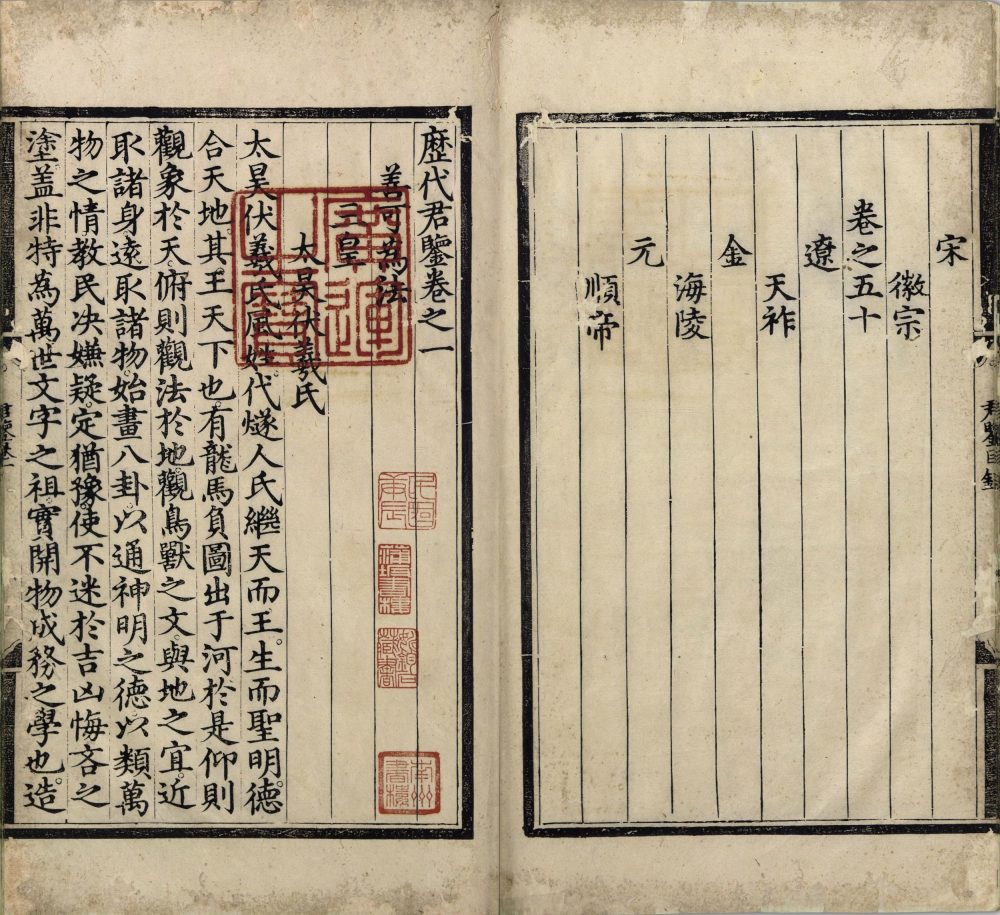 宋
徽宗
卷之五十
遼
天祚
金
海陵
元
順帝
歷代君鑒卷之一
善可為法
三皇
太昊伏羲氏
太昊伏羲氏風姓。代燧人氏繼天而王。生而聖明。德
合天地。其王天下也。有龍馬負圖出于河於是仰則
觀象於天。俯則觀法於地。觀鳥獸之文。與地之宜。近
取諸身。遠取諸物。始畫八卦。以通神明之德。以類萬
物之情。教民决嫌疑。定猶豫。使不迷於吉凶悔吝之
塗。盖非特為萬世文字之祖。實開物成務之學也。造
南州
書樓